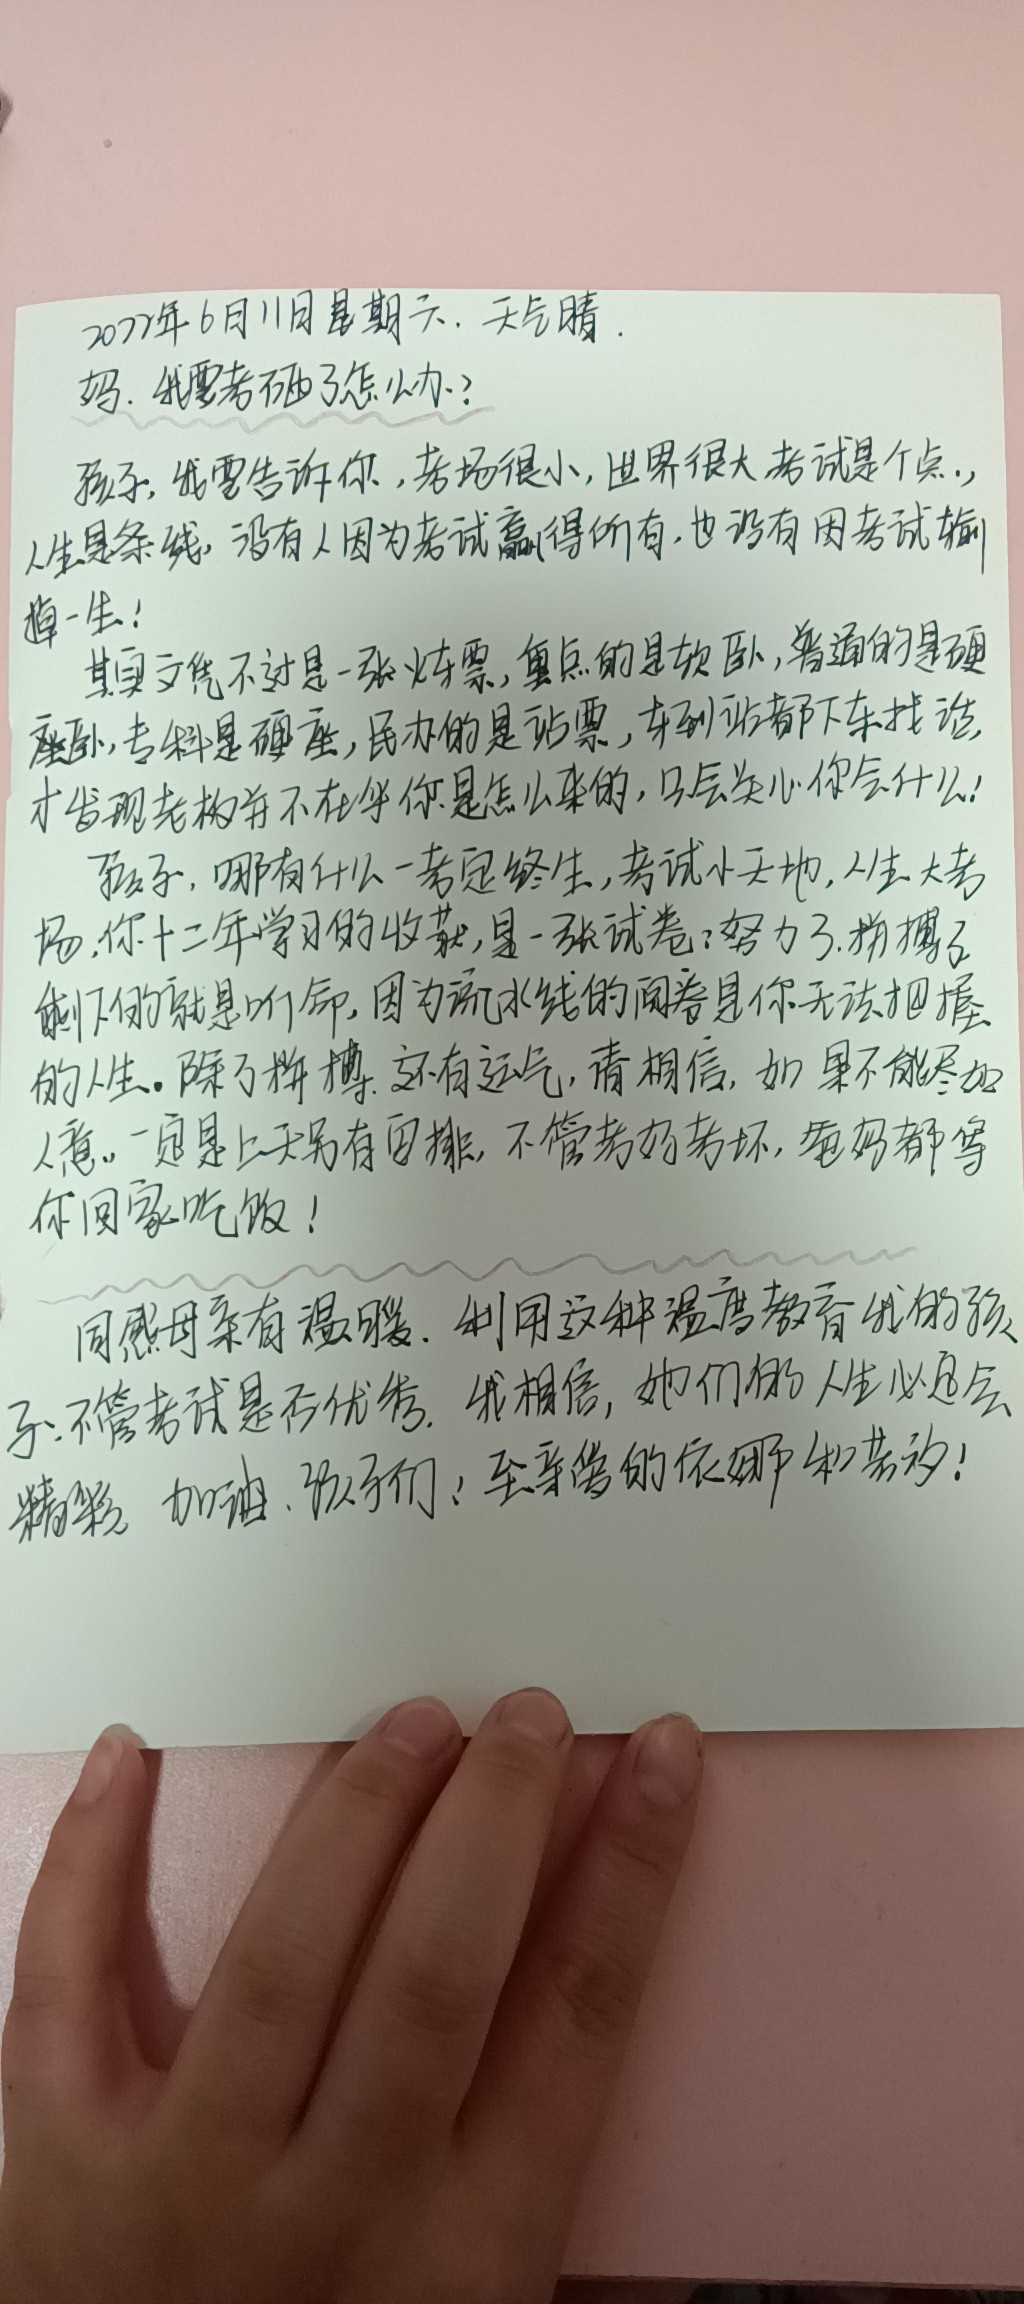 2022年6月11日星期六.天气晴.
妈.我要考不由了怎么办?
孩子,我要告诉你,考场很小,世界很大考试是个点.,
人生是条线,没有人因为考试赢得所有,也没有因考试输
掉一生!
其实文凭不过是一张火车票,重点的是软卧,普通的是硬
座卧,专科是硬座,民办的是站票,车到站都下车找活,
才发现老板并不在乎你是怎么来的,只会关心你会什么!
孩子,哪有什么一考定终生,考试小天地,人生大考
场,你十二年学习的收获,是一张试卷;努力了.拼搏了
剩下的就是听命,因为流水线的阅卷是你无法把握
的人生。除了拼搏.还有运气,请相信,如果不能尽如
人意。一定是上天另有安排,不管考好考坏,爸妈都等
你回家吃饭!
同感母亲有温暖.利用这种温度教育我的孩
子.不管考试是否优秀.我相信,她们的人生必定会
精彩 加油、孩子们!至亲爱的依娜和若汐!